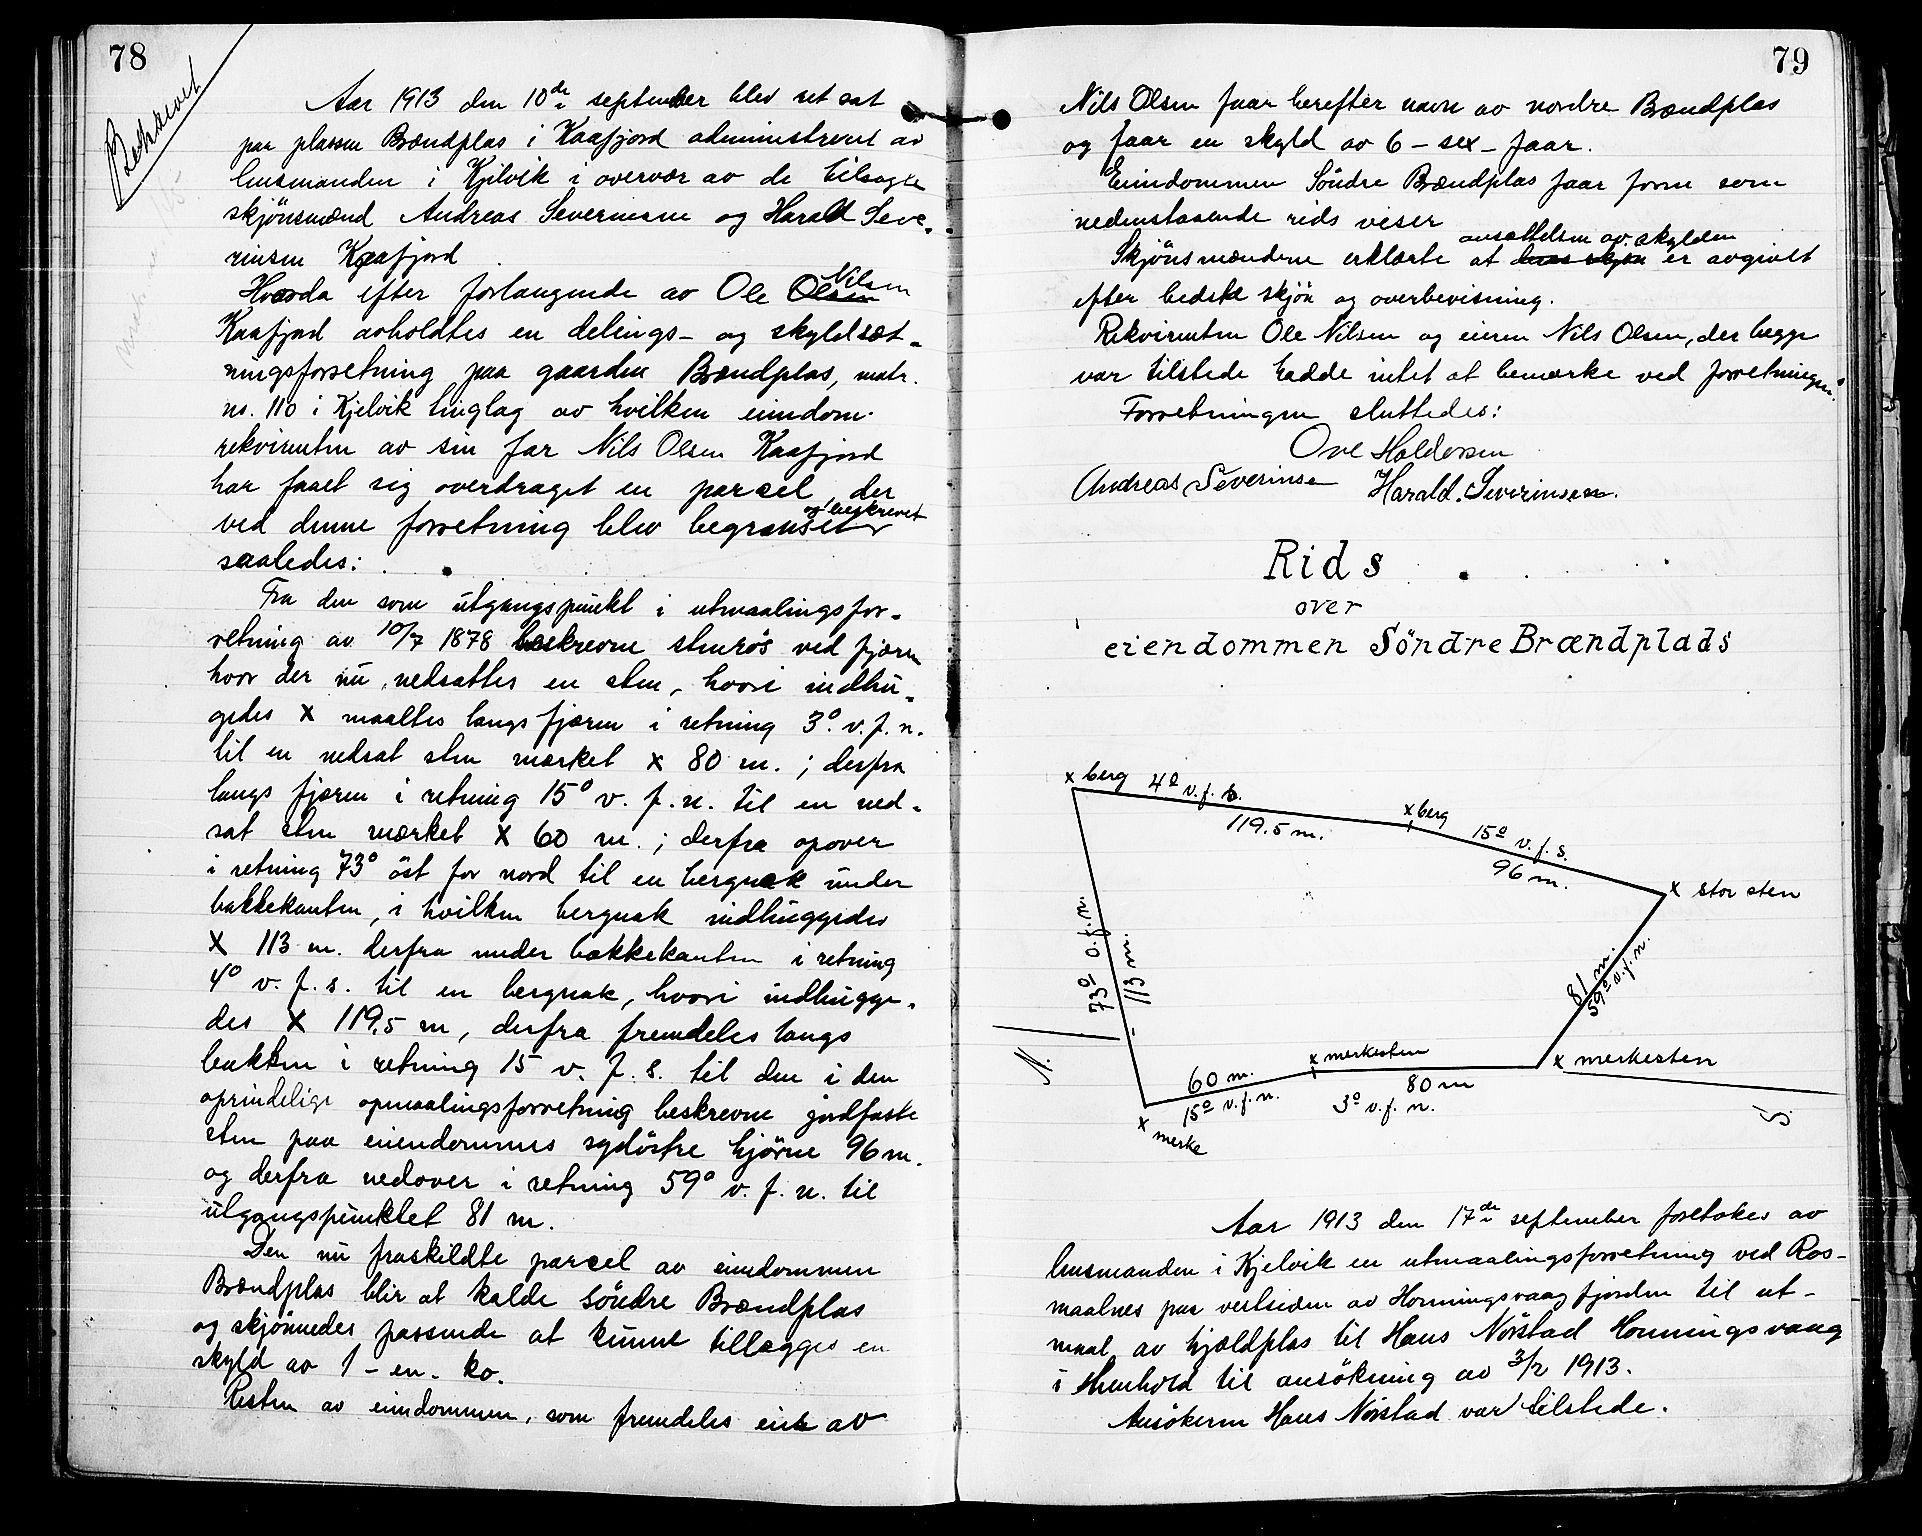 78
Bekrævet
Aar 1913 den 10de september blev ret sat
paa plassen Brændplas i Kaafjord administreret av
lensmanden i Kjelvik i overvær av de tilsagte
skjönsmænd Andreas Severinsen og Harald Seve-
rinsen Kaafjord
Hvorda efter forlangende av Ole Olsen Nilsen
Kaafjord avholdtes en delings- og skyldsæt-
ningsforretning paa gaarden Brændplas, matr.
no. 110 i Kjelvik tinglag av hvilken eiendom
rekvirenten av sin far Nils Olsen Kaafjord
har faaet sig overdraget en parcel, der
ved denne forretning blev begrænset og beskrevet
saaledes:
Fra den som utgangspunkt i utmaalingsfor-
retning av 10/7 1878 beskrevne stenrös ved fjæren
hvor der nu nedsattes en sten, hvori indhu-
gedes X maaltes langs fjæren i retning 3° v. f. n.
til en nedsat sten mærket x 80 m. ; derfra
langs fjæren i retning 15° v. f. n. til en ned-
sat sten mærket X 60 m. ; derfra opover
i retning 73° öst for nord til en bergnak under
bakkekanten, i hvilken bergnak indhuggedes
X 113 m. derfra under bakkekanten i retning
4° v. f. s. til en bergnak, hvori indhugge-
des X 119,5 m, derfra fremdeles langs
bakken i retning 15 v. f. s. til den i den
oprindelige opmaalingsforretning beskrevne jordfaste
sten paa eiendommens sydöstre hjörne 96 m.
og derfra nedover i retning 59° v. f. n. til
utgangspunktet 81 m.
Den nu fraskildte parcel av eiendommen
Brændplas blir at kalde Söndre Brændplas
og skjönnedes passende at kunne tillægges en
skyld av 1 - en - ko.
Resten av eiendommen, som fremdeles eies av
79
Nils Olsen faar herefter navn av nordre Brændplas
og faar en skyld av 6 - sex - faar.
Eiendommen Söndre Brændplas faar form som
nedenstaaende rids viser
ansættelsen av skylden
Skjönsmændene erklærte at er avgivet
efter bedste skjön og overbevisning.
Rekvirenten Ole Nilsen og eieren Nils Olsen, der begge
var tilstede hadde intet at bemærke ved forretningen.
Forretningen sluttedes:
Ove Haldorsen
Andreas Severinsen Harald. Severinsen.
Rids
over
eiendommen Söndre Brændplads
x berg 4° v. f. s.
119.5 m.
x berg
15° v. f. s.
96 m.
x stor sten
73° o. f. n.
113 m.
81 m.
59° v. f. n.
N.
x merkesten
x merkesten
60 m.
15° v. f. n.
80 m
3° v. f. n.
S.
x merke
Aar 1913 den 17de september foretokes av
lensmanden i Kjelvik en utmaalingsforretning ved Ros-
maalnes paa vestsiden av Honningsvaagfjorden til ut-
maal av hjeldplas til Hans Nörstad Honningsvaag
i Henhold til ansökning av 3/2 1913.
Ansökeren Hans Nörstad var tilstede.